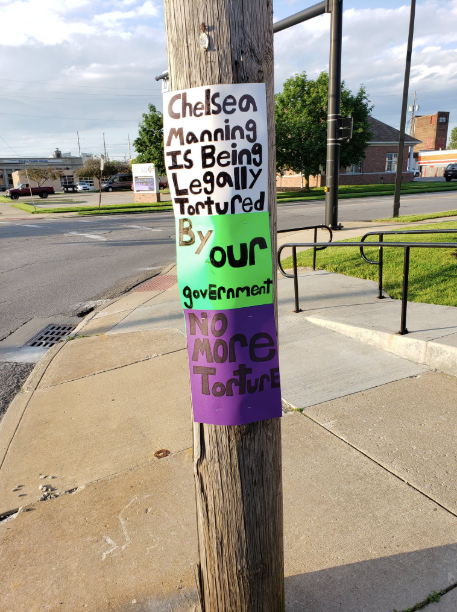 Chelsea
Manning
Is Being
Legally
Tortured
By
our
govErnment
No
More
TorturE